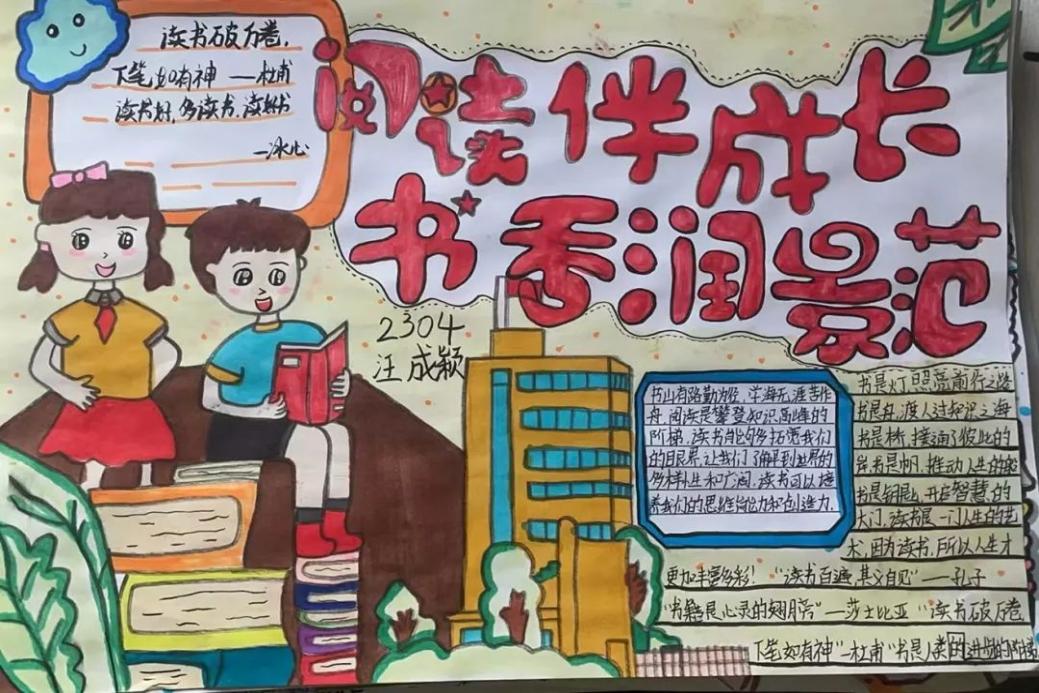 读书破万卷,
下笔如有神 —杜甫
读书好,多读书,读好书
—冰心
阅读伴成长
书香润景范
2304
汪成颖
书山有路勤为径,学海无涯苦作
舟,阅读是攀登知识高峰的
阶梯,读书能够拓宽我们
的眼界,让我们了解到世界的
多样性和广阔,读书可以培
养我们的思维能力和创造力.
书是灯,照亮前行之路
书是舟,渡人过知识之海
书是桥,接通了彼此的
岸书是帆,推动人生的船
书是钥匙,开启智慧的
大门,读书是一门人生的艺
术,因为读书,所以人生才
更加丰富多彩!“读书百遍,其义自见”——孔子
“书籍是心灵的翅膀”—莎士比亚“读书破万卷
下笔如有神”—杜甫“书是人类的进步的阶梯